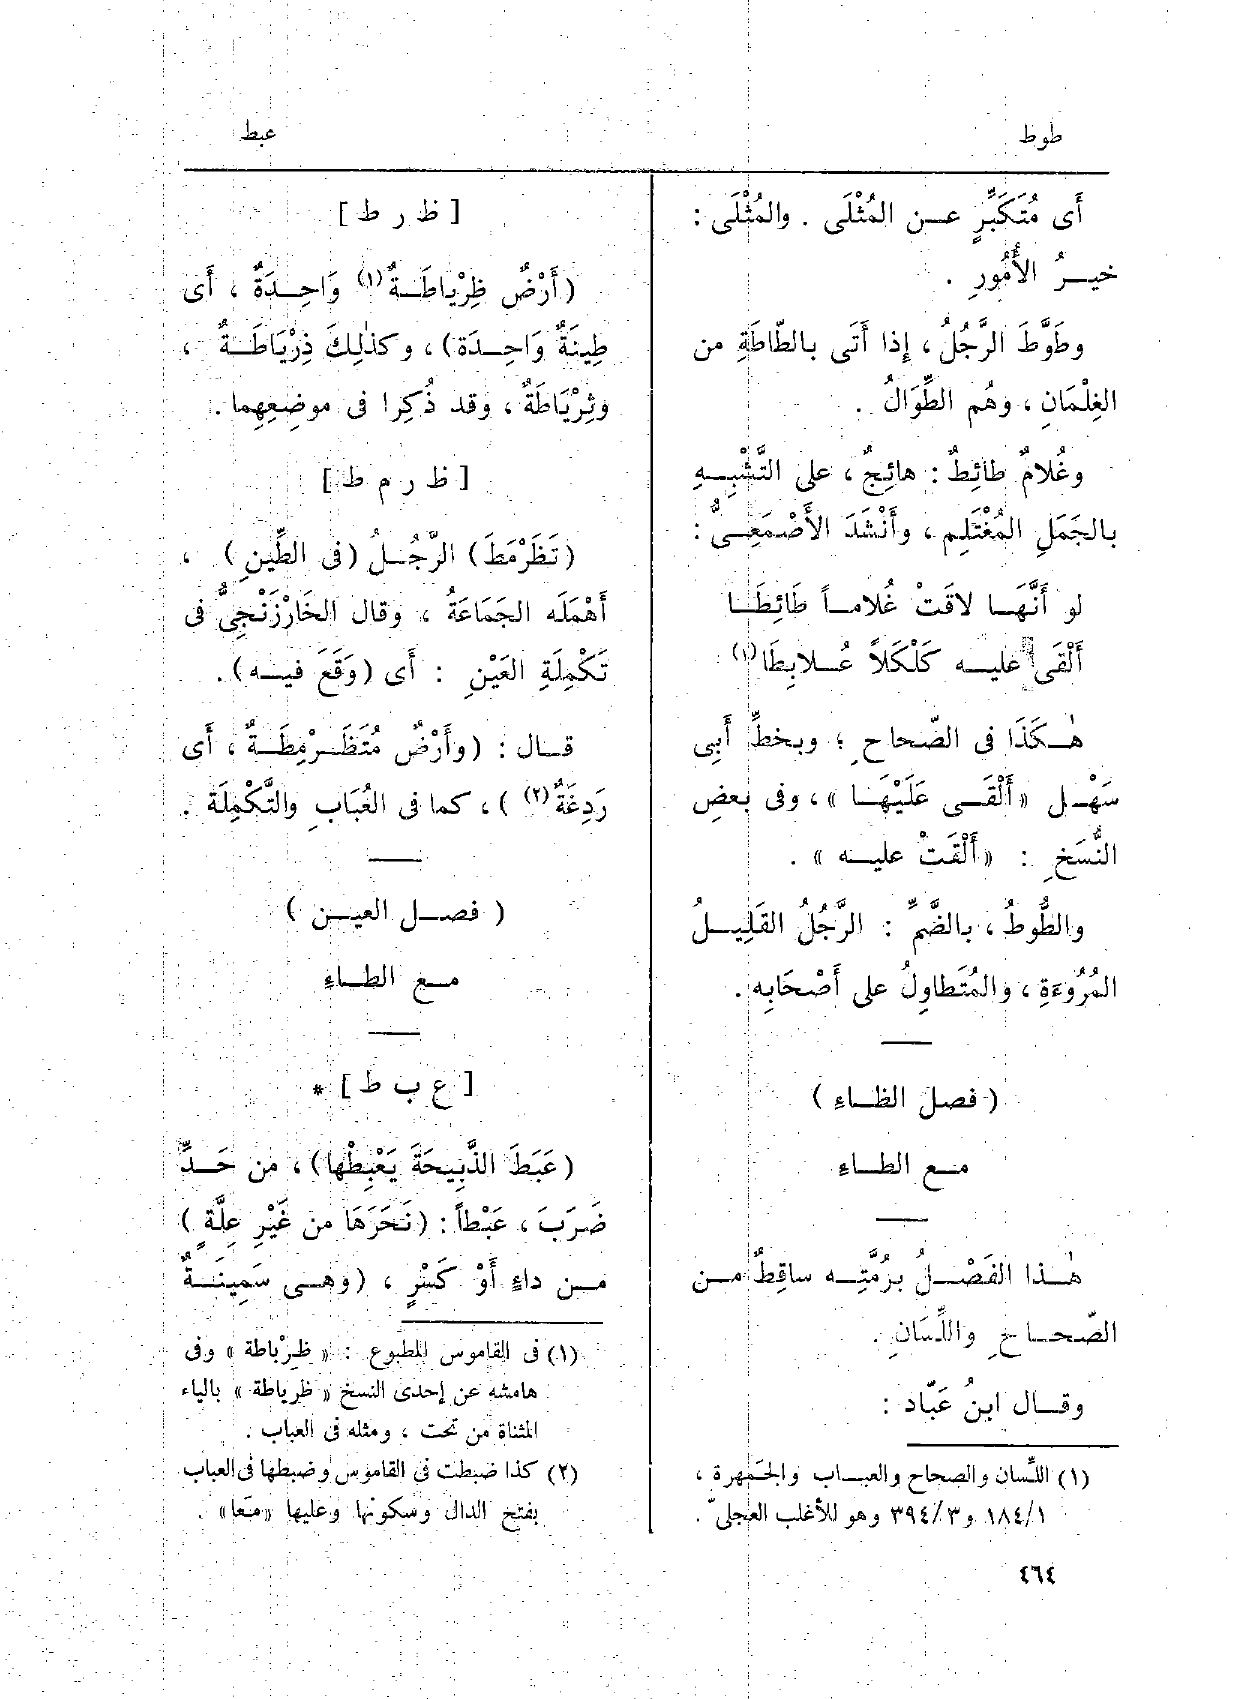 طوط
عبط
أَى مُتَكَبِّرٍ عن المُثْلَى . والمُثْلَى :
خيرُ الأُمُورِ .
وطَوَّطَ الرَّجُلُ ، إِذا أَتَى بالطّاطَةِ من
الغِلْمَانِ ، وهُم الطِّوَالُ .
وغُلامٌ طائِطٌ : هائِجٌ ، على التَّشْبِيهِ
بالجَمَلِ المُغْتَلِم ، وأَنْشَدَ الأَصْمَعِىُّ :
لو أَنَّهَا لاقَتْ غُلاماً طَائِطَا
أَلْقَى عليه كَلْكَلاً عُلابِطَا (١)
هٰكَذَا فى الصّحاحِ ؛ وبخطِّ أَبِى
سَهْل «أَلْقَى عَلَيْهَا » ، وفى بعضِ
النُّسَخِ : «أَلْقَتْ عليه » .
والطُّوطُ ، بالضَّمِّ : الرَّجُلُ القَلِيلُ
المُرُوءَةِ ، والمُتَطاوِلُ على أَصْحَابِه .
( فصل الظاء )
مع الطاء
هٰذا الفَصْلُ برُمَّتِه ساقِطٌ من
الصّحاحِ واللِّسَانِ .
وقال ابنُ عَبّاد :
(١) اللِّسان والصحاح والعباب والجَمهرة ،
١٨٤/١ و٣٩٤/٣ وهو للأغلب العجلىّ .
٤٦٤
[ ظ ر ط ]
(أَرْضٌ ظِرْياطَةٌ (١) وَاحِدَةٌ ، أَى
طِينَةٌ وَاحِدَة) ، وكذٰلِكَ ذِرْيَاطَةٌ ،
وثِرْيَاطَةٌ ، وقد ذُكِرا فى موضِعِهِما .
[ ظ ر م ط ]
(تَظَرْمَطَ) الرَّجُلُ (فى الطِّينِ) ،
أَهْمَلَه الجَمَاعَةُ ، وقال الخَارْزَنْجِىُّ فى
تَكْمِلَةِ العَيْنِ : أَى (وَقَعَ فيه) .
قال : (وأَرْضٌ مُتَظَرْمِطَةٌ ، أَى
رَدِغَةٌ (٢) ) ، كما فى العُبَابِ والتَّكْمِلَة .
( فصل العين )
مع الطاء
[ ع ب ط ] *
(عَبَطَ الذَّبِيحَةَ يَعْبِطُها) ، من حَدِّ
ضَرَبَ ، عَبْطاً : (نَحَرَهَا من غَيْرِ عِلَّةٍ )
من داءٍ أَوْ كَسْرٍ ، (وهى سَمِينَةٌ
(١) فى القاموس المطبوع : « ظِرْباطة » وفى
هامشه عن إحدى النسخ « ظرياطة » بالياء
المثناة من تحت ، ومثله فى العباب .
(٢) كذا ضبطت فى القاموس وضبطها فى العباب
بفتح الدال وسكونها وعليها «معا» .